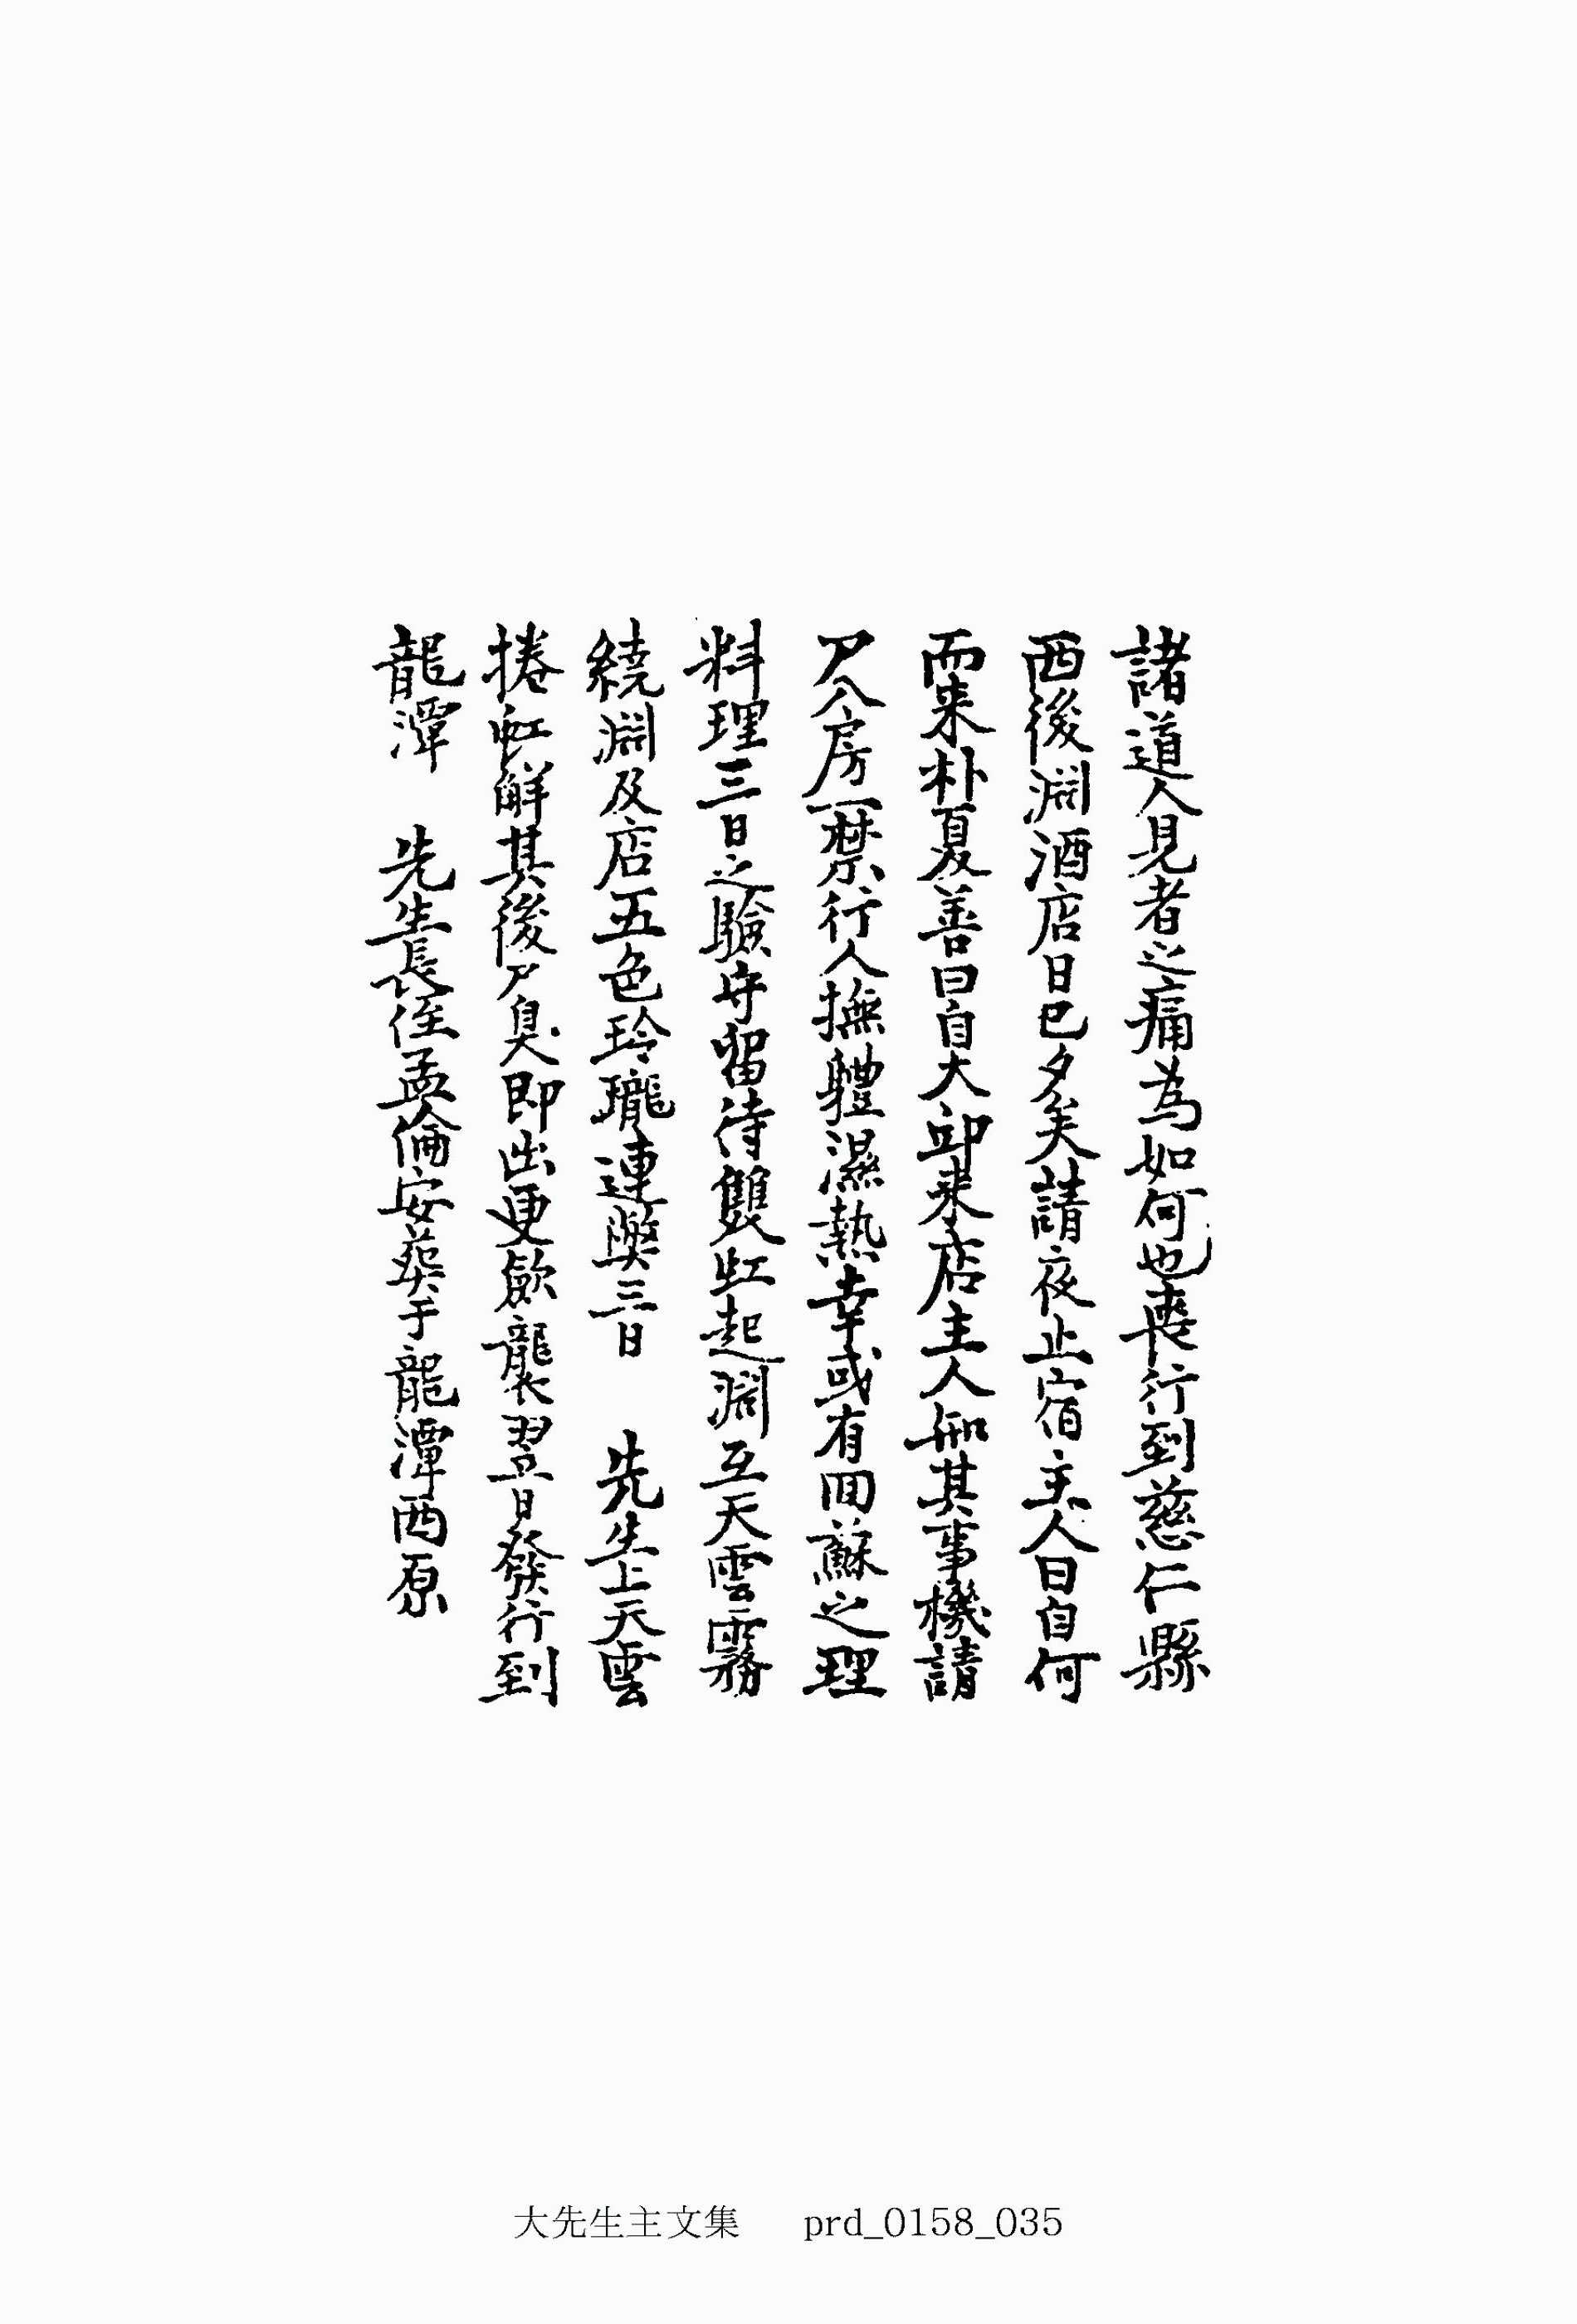 諸道人見者之痛為如何也喪行到慈仁縣
西後淵酒店日已夕矣請夜止宿主人曰自何
而来朴夏善曰自大邱来店主人知其事機請
尸入房一禁行人撫軆濕熱幸或有回蘇之理
料理三日之驗守留待雙虹起淵亙天雲霧
繞淵及店五色玲瓏連獘三日　先生上天雲
捲虹解其後尸臭即出更斂襲翌日發行到
龍潭　先生長侄孟倫安葬于龍潭西原
大先生主文集　prd_0158_035